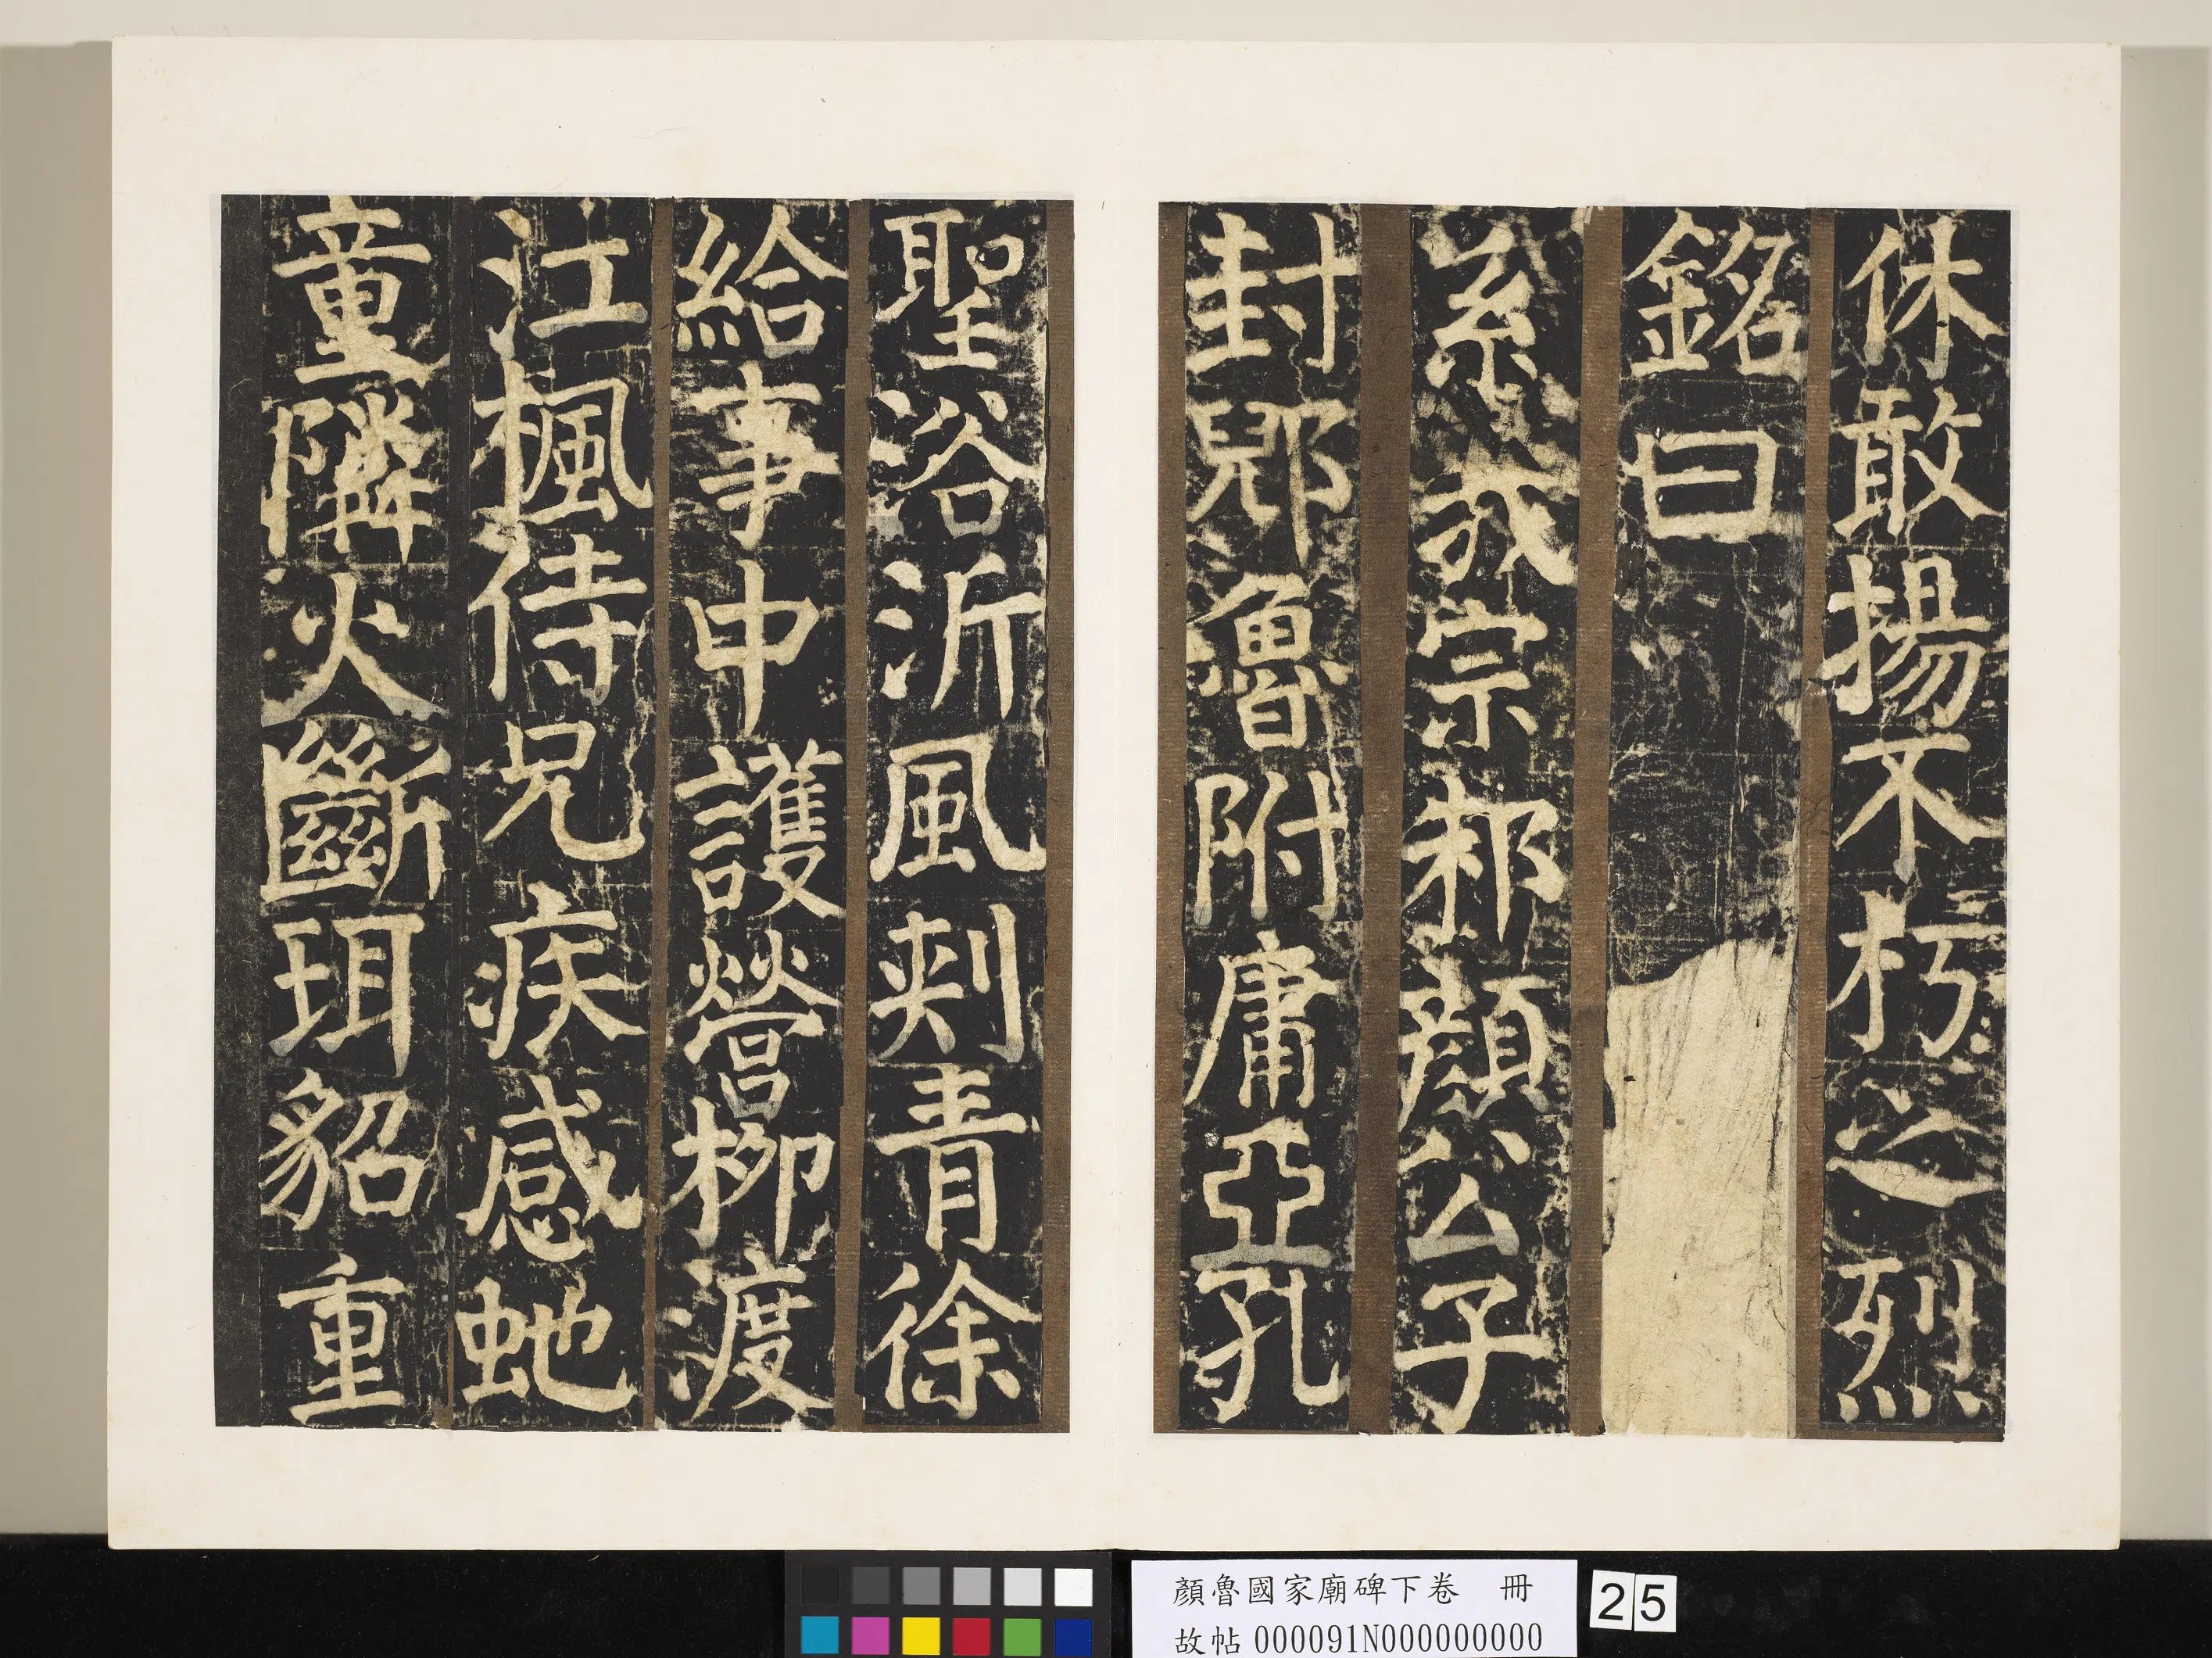 休敢揚不朽之烈
銘曰
系我宗邾顏公子
封郳魯附庸亞孔
聖浴沂風刾青徐
給事中護營柳渡
江楓侍兄疾感虵
童隣火斷珥貂重
顏魯國家廟碑下卷　冊
故帖000091N000000000
25